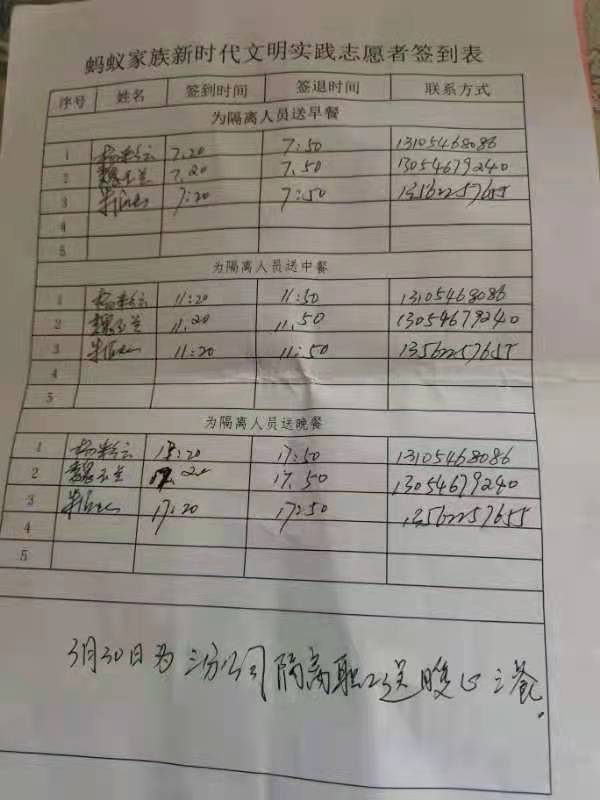 蚂蚁家族新时代文明实践志愿者签到表
序号 姓名 签到时间 签退时间 联系方式
为隔离人员送早餐
1 7.20 7:50 13105468086
2 魏玉兰 7.20 7.50 13054679240
3 7:20 7:50 13562257655
4
5
为隔离人员送中餐
1 11:20 11:50 13105468086
2 魏玉兰 11.20 11.50 13054679240
3 11:20 11:50 13562257655
4
5
为隔离人员送晚餐
1 17:50 13105468086
2 魏玉兰 17.20 17.50 13054679240
3 17:20 17:50 13562257655
4
5
3月30日为三分公司隔离职工送暖心三餐.